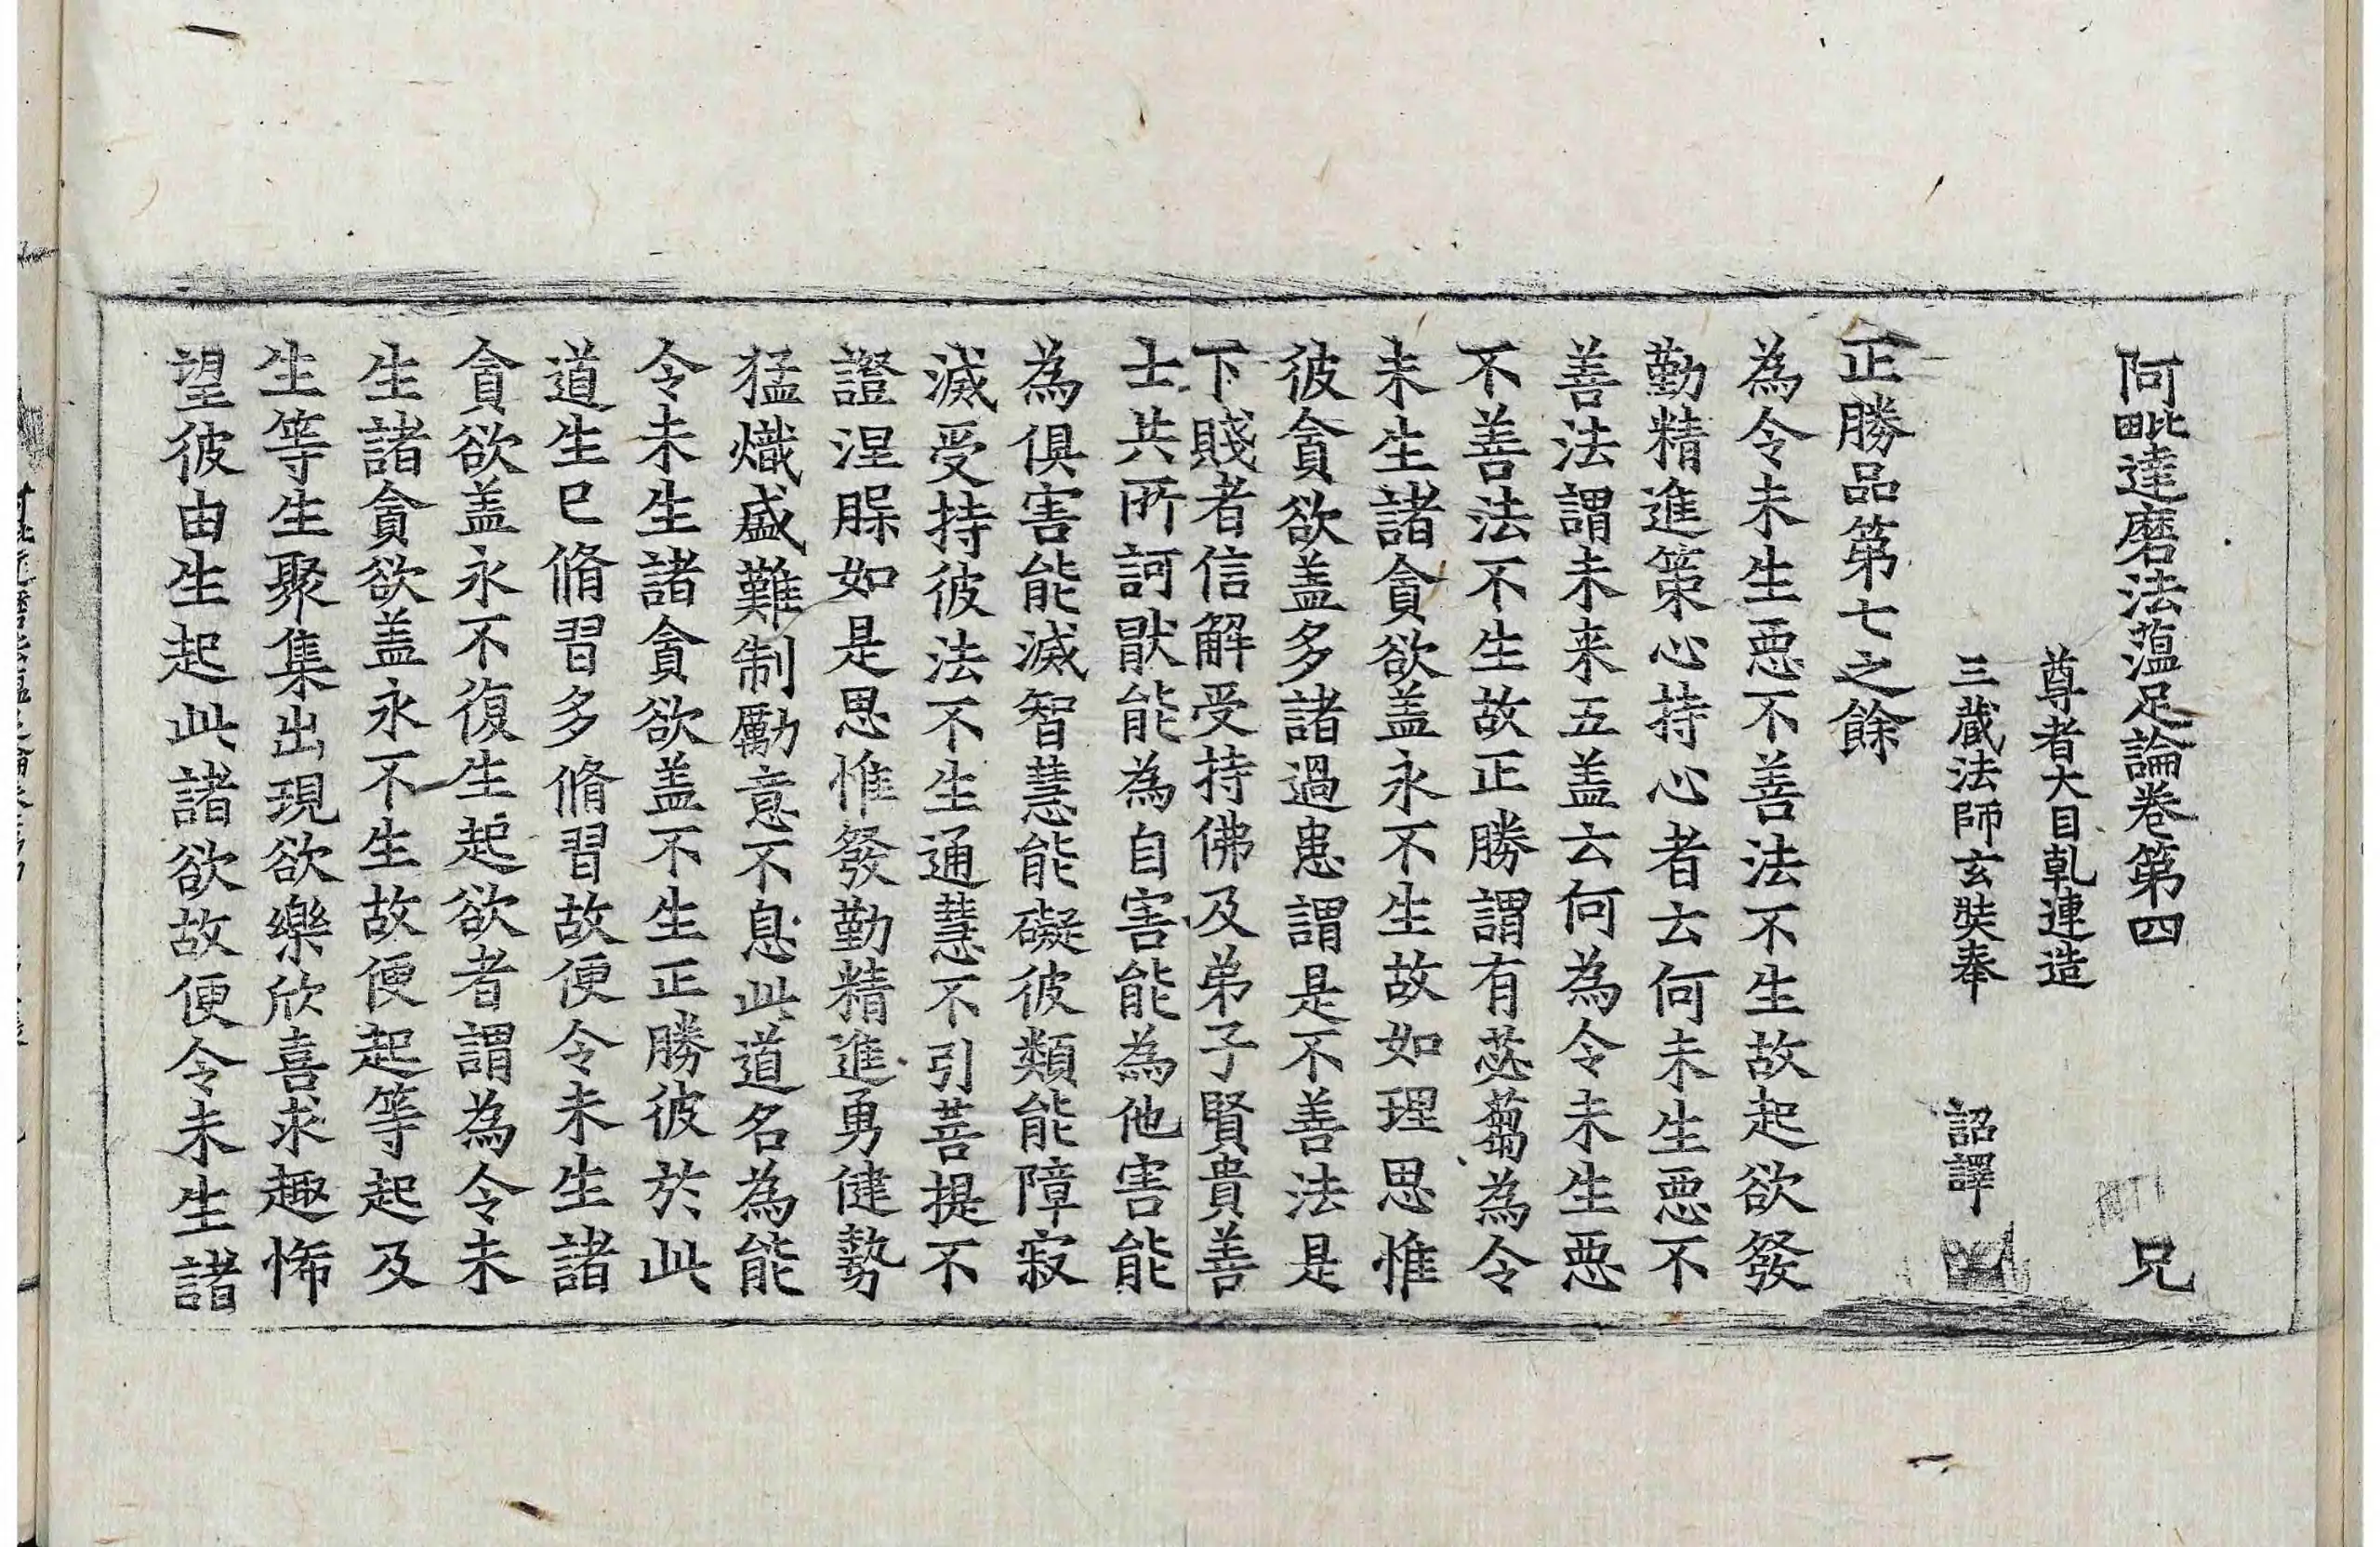 阿毗達磨法蕰足論卷第四　兄
尊者大目乹連造
三蔵法師玄奘奉　詔譯
正勝品第七之餘
為令未生惡不善法不生故起欲發
勤精進策心持心者云何未生惡不
善法謂未来五盖云何為令未生惡
不善法不生故正勝謂有苾蒭為令
未生諸貪欲盖永不生故如理思惟
彼貪欲盖多諸過患謂是不善法是
下賤者信解受持佛及弟子賢貴善
士共所訶猒能為自害能為他害能
為俱害能滅智慧能礙彼類能障寂
滅受持彼法不生通慧不引菩提不
證涅槃如是思惟發勤精進勇健勢
猛熾盛難制勵意不息此道名為能
令未生諸貪欲盖不生正勝彼於此
道生已脩習多脩習故便令未生諸
貪欲盖永不復生起欲者謂為令未
生諸貪欲盖永不生故便起等起及
生等生聚集出現欲樂欣喜求趣悕
望彼由生起此諸欲故便令未生諸